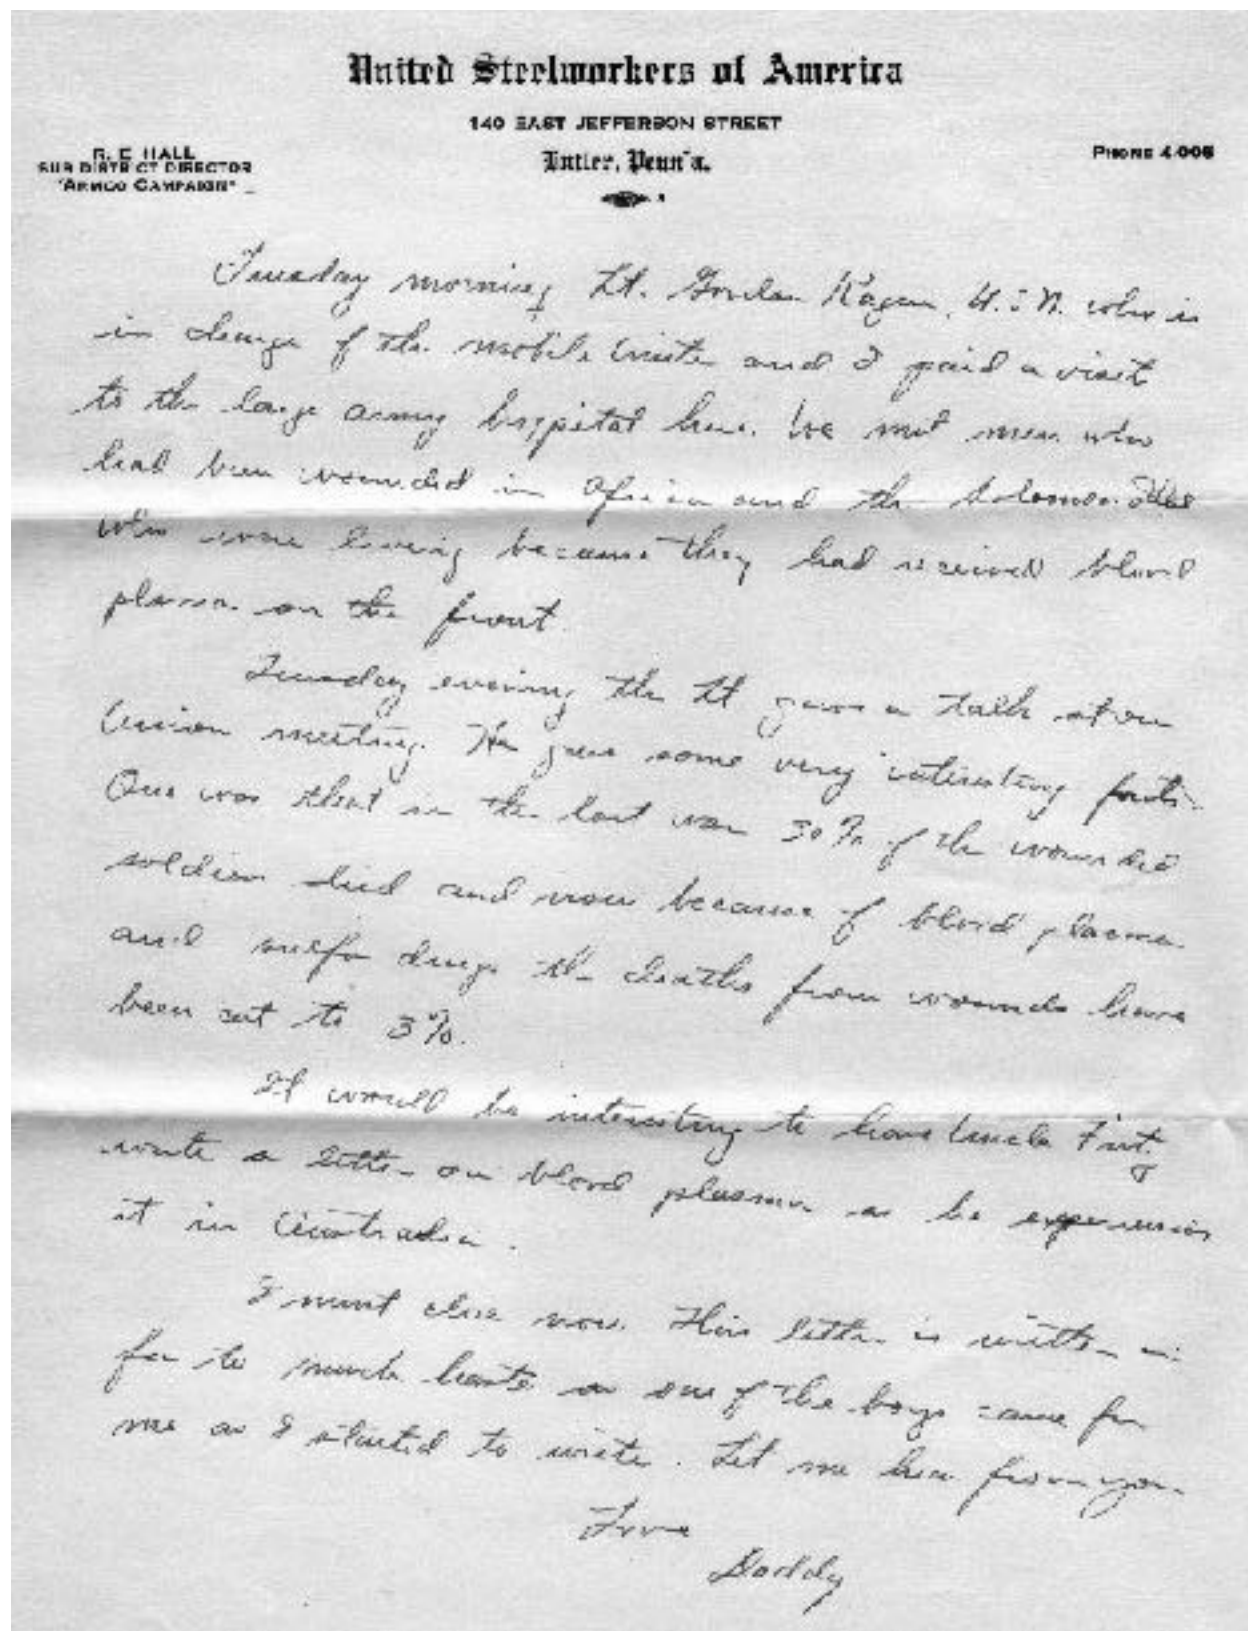 United Steelworkers of America
140 EAST JEFFERSON STREET
Butler, Penn'a.
PHONE 4-006
HALL
SUB DISTRICT DIRECTOR
"ARMCO CAMPAIGN"
Tuesday morning Lt. Kagen, U.S.N. who is
in charge of the mobile units and I paid a visit
to the large army hospital here. We met men who
had been wounded in Africa and the Solomon Isles
who were living because they had received blood
plasma on the front.
Tuesday evening the Lt gave a talk at our
Union meeting. He gave some very interesting facts.
One was that in the last war 30% of the wounded
soldiers died and now because of blood plasma
and sulfa drugs the deaths from wounds have
been cut to 3%.
It would be interesting to have Uncle
write a letter on blood plasma as he
it in
I must close now. This letter is written in
far to much haste as one of the boys came for
me as I started to write. Let me hear from you
Love
Daddy